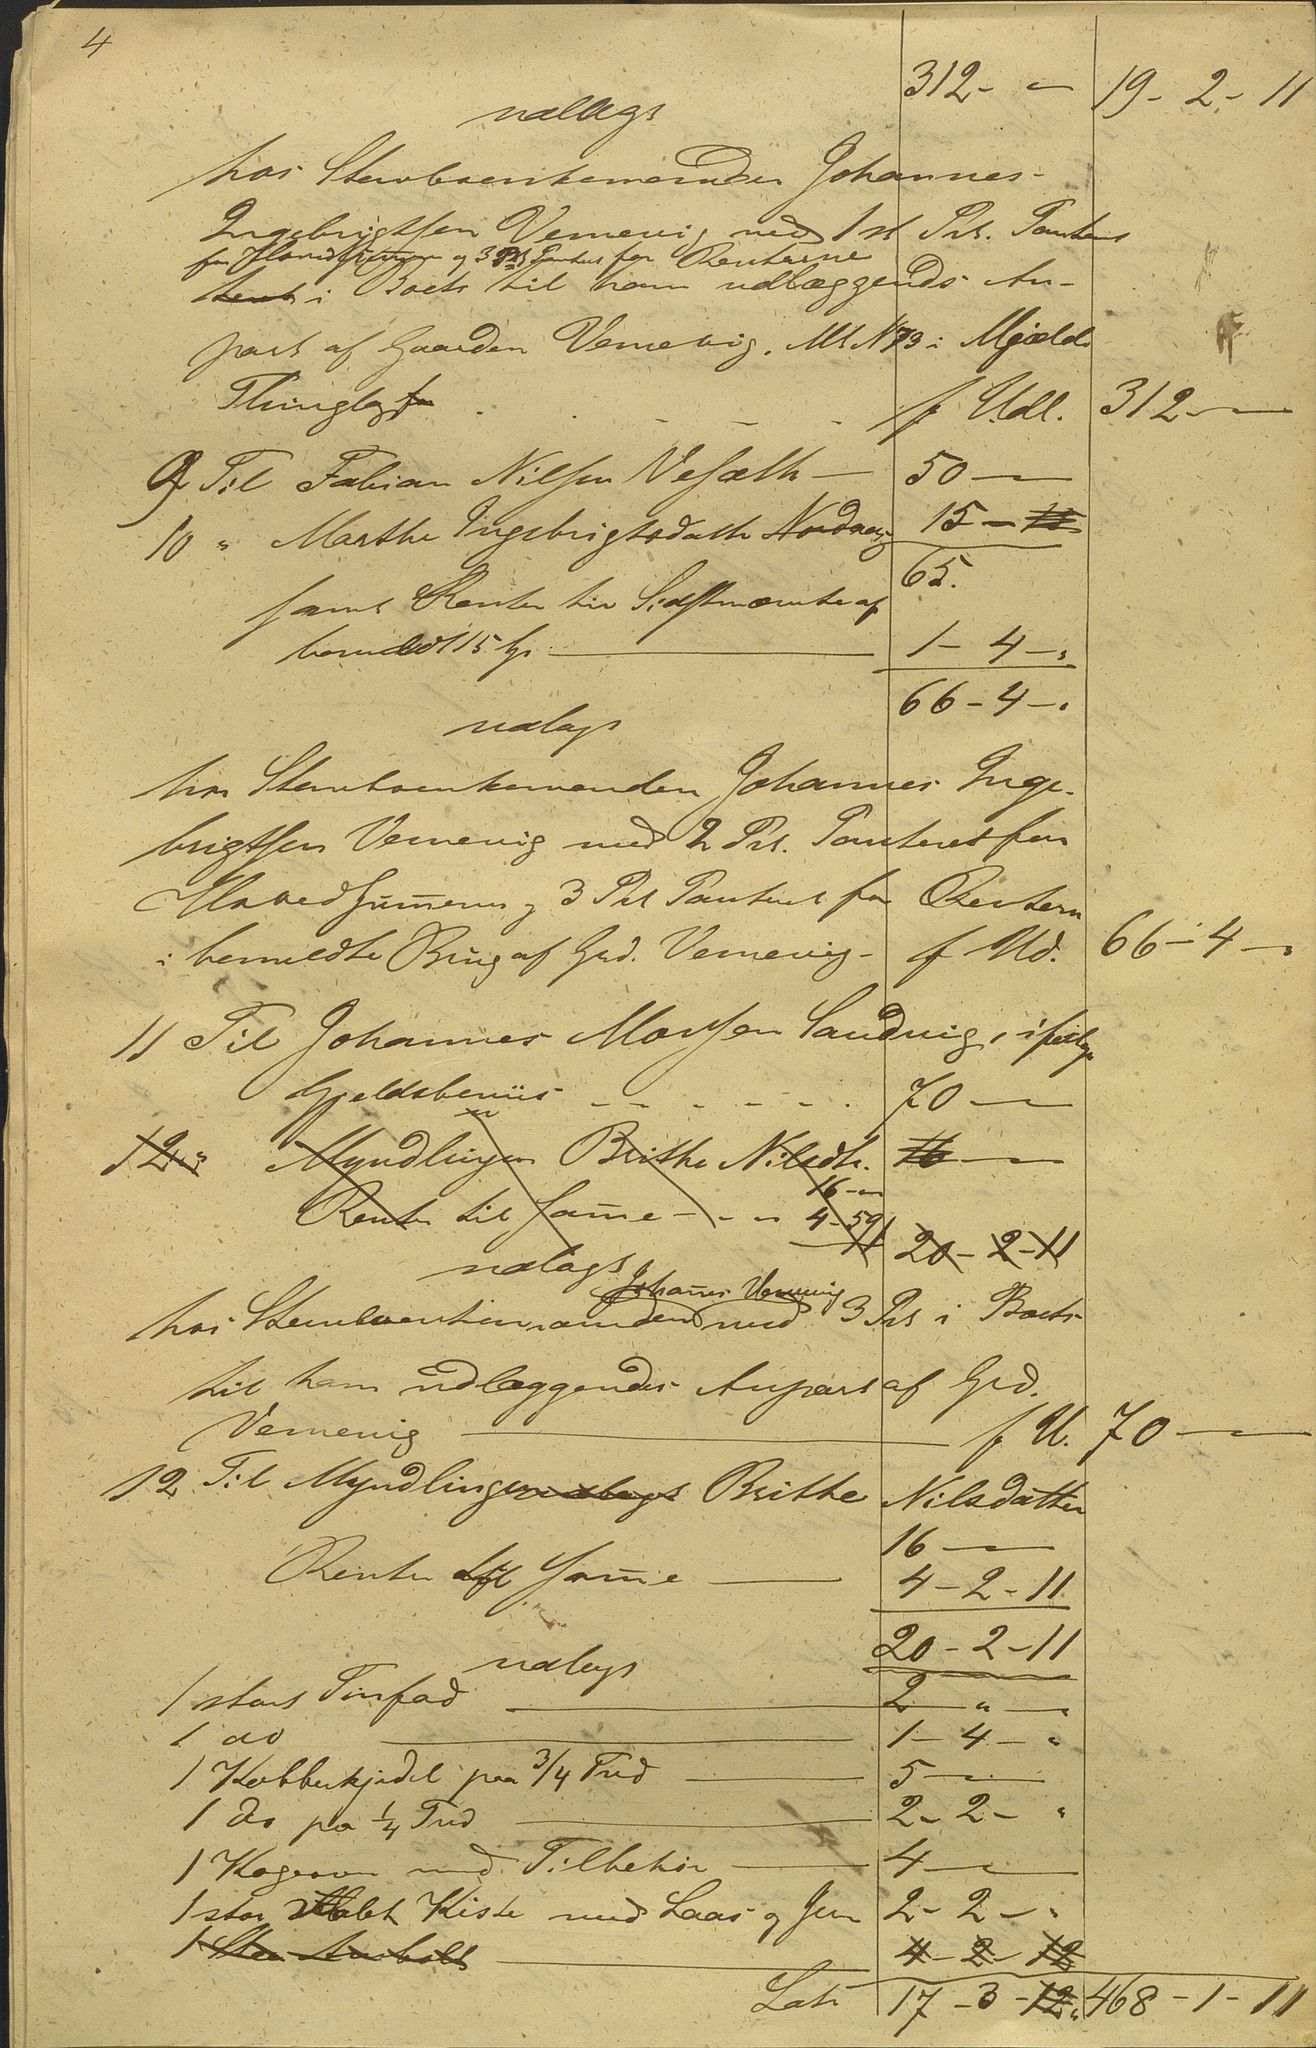 4
312 - " - 19 - 2 - 11
udlagt
hos Stervboenkemanden Johannes
Ingebrigtsen Vernevig med 1st Prt. Panteret
for Hovedsummen og 3 Prt Panteret for Renterne
i Boets til ham udlæggende An-
part af Gaarden Vernevig, Mt N 73 i Mjelde
Thinglag . . . . . f Udl. 312 - " -
9 Til Fabian Nilsen Vesæth - 50 - " -
10 " Marthe Ingebrigtsdatter Nordvig 15 -
65.
samt Renter til Sidstnævnte af
bemeldt 15 Sp. 1 - 4 - "
66 - 4 - "
udlagt
hos Stervboenkemanden Johannes Inge-
brigtsen Vernevig med 2 Prt. Panteret for
Hovedsummen og 3 Prt Panteret for Renterne
i bemeldte Brug af Grd. Vernevig - f Ud. 66 - 4 - "
11 Til Johannes Monsen Sandvig, ifølge
Gjeldsbeviis - - - - - - 70 - " -
12 " Myndlingen Brithe Nilsdtr. 16 - " -
16 - "
Renter til Samme - - - 4 - 59 20 - 2 - 11
udlagt
Johannes Vernevig
hos Stervboenkemanden med 3 Prt i Boets
til ham udlæggende Anpart af Grd.
Vernevig f U. 70 - " -
12 Til Myndlingen udlagt Brithe Nilsdatter
16 - " -
Renter til Samme 4 - 2 - 11
20 - 2 - 11
udlagt
1 stort Tinfad 2 - " - "
1 do 1 - 4 - "
1 Kobberkjedel paa 3/4 Tnd 5 - " -
1 do pa 1/4 Tnd 2 - 2 - "
1 Kogeovn med Tilbehør 4 - " -
1 stor Malet Kiste med Laas og Jern 2 - 2 - "
1 Sten Ambolt 4 - 2 - 12
Lat. 17 - 3 - 12 " 468 - 1 - 11